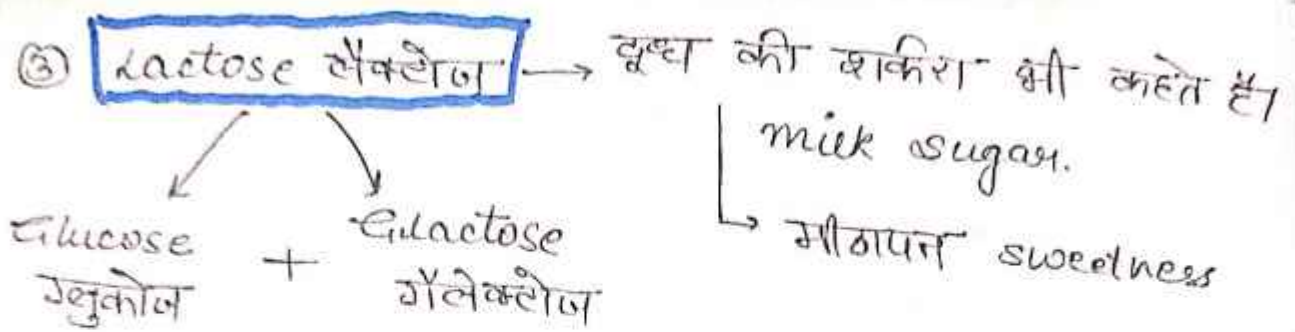 ③ Lactose लैक्टोज → दूध की शर्करा भी कहते है।
milk sugar.
→ मीठापन sweetness
Glucose + Gilactose
ग्लुकोज गॅलेक्टोज